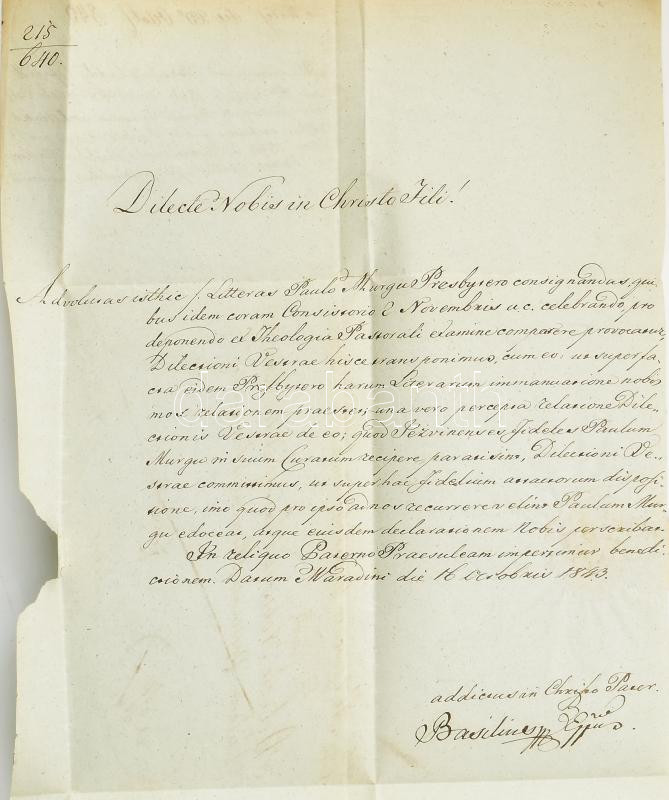 215
640.
Dilecte Nobis in Christo Fili!
Advolutas isthic s. Litteras Paulo Murgu Presbytero consignandas, qui
bus idem coram Consistorio 2 Novembris a.c. celebrando, pro
deponendo ex Theologia Pastorali examine comparere provocatur,
Dilectioni Vestrae hisce transponimus, cum eo: ut super fa-
cta eidem Presbytero harum Literarum immanuatione nobis
mox relationem praestet; una vero percepta relatione Dile-
ctionis Vestrae de eo; quod Fideles Paulum
Murgu in suum Curatum recipere parati sint, Dilectioni Ve-
strae committimus, ut super hac Fidelium attactorum disposi
tione, imo quod pro ipso ad nos recurrere velint Paulum Mur-
gu edoceat, atque eiusdem declarationem Nobis perscribat.
In reliquo Paterno Praesuleam impertimur benedi-
ctionem. Datum M. Varadini die 16 Octobris 1843.
addictus in Christo Pater.
Basilius Eppus
darabanth